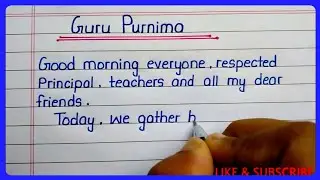 Guru Purnima
Good morning everyone, respected
Principal, teachers and all my dear
friends.
Today, we gather h
LIKE & SUBSCRIBE